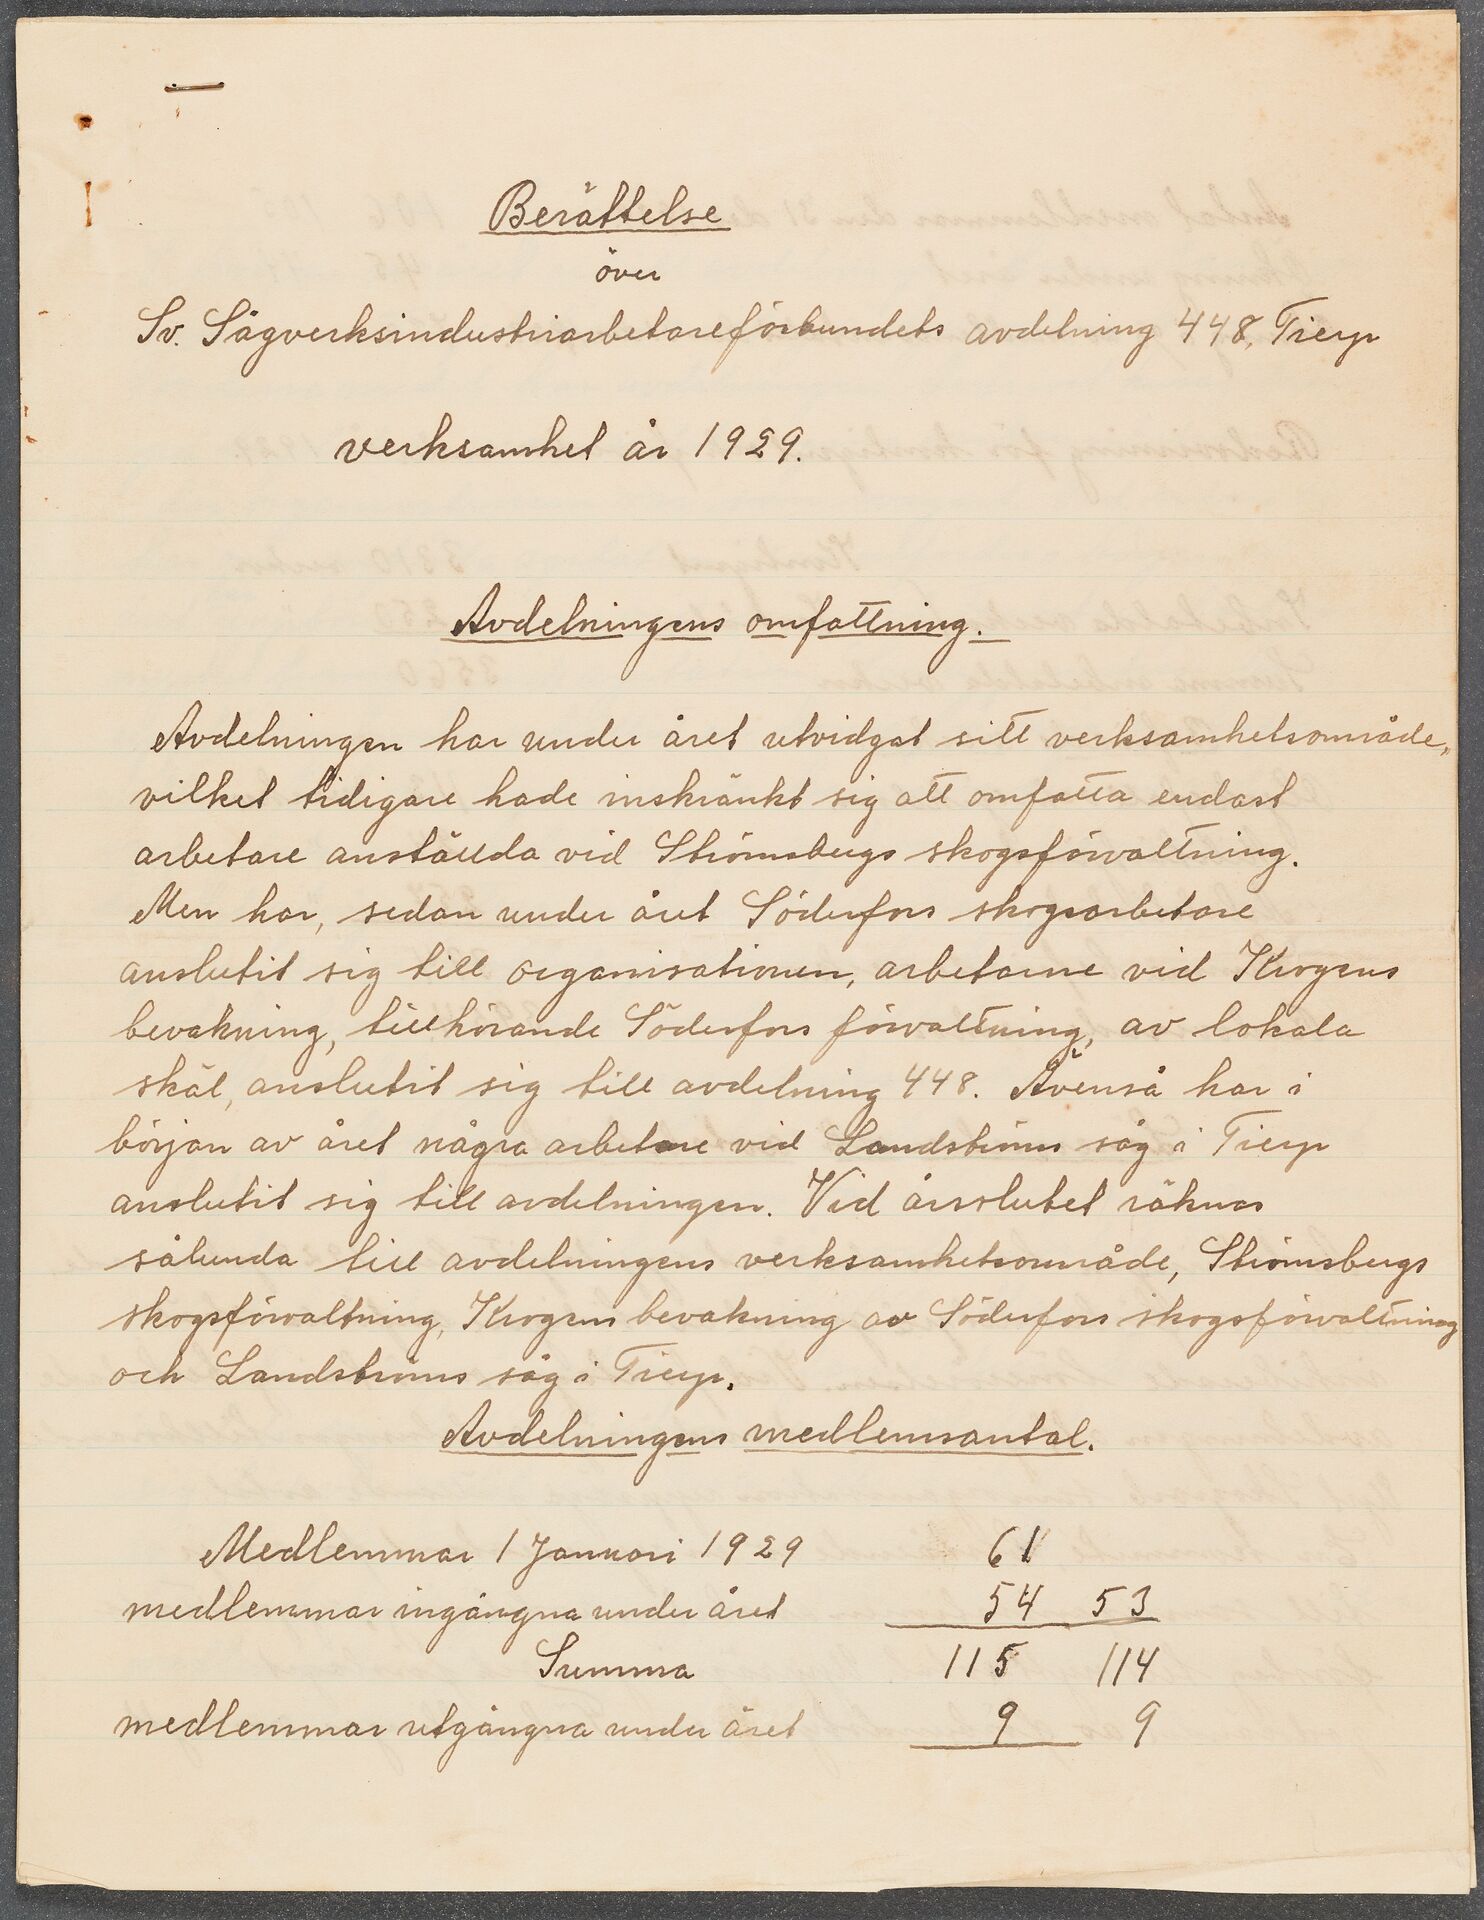 Berättelse
över
Sv. Sågverksindustriarbetareförbundets avdelning 448, Tierp
verksamhet år 1929.
Avdelningens omfattning.
Avdelningen har under året utvidgat sitt verksamhetsområde,
vilket tidigare hade inskränkt sig att omfatta endast
arbetare anställda vid Strömsbergs skogsförvaltning.
Men har, sedan under året Söderfors skogsarbetare
anslutit sig till organisationen, arbetarne vid Krogens
bevakning, tillhörande Söderfors förvaltning, av lokala
skäl, anslutit sig till avdelning 448. Ävenså har i
början av året några arbetare vid Landströms såg i Tierp
anslutit sig till avdelningen. Vid årsslutet räknas
sålunda till avdelningens verksamhetsområde, Strömsbergs
skogsförvaltning, Krogens bevakning av Söderfors skogsförvaltning
och Landströms såg i Tierp.
Avdelningens medlemsantal.
Medlemmar 1 Januari 1929 61
medlemmar ingångna under året 54 53
Summa 115 114
medlemmar utgångna under året 9 9